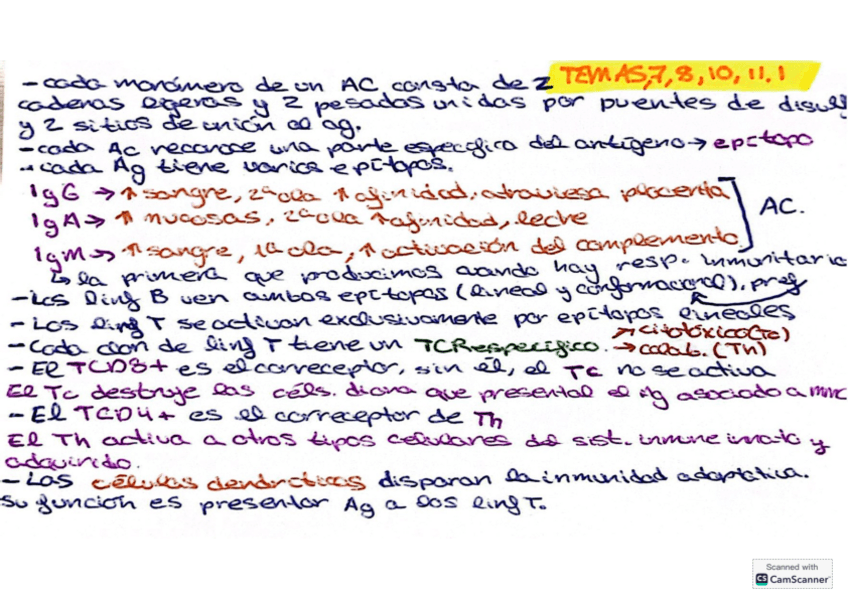 TEMAS,7,8,10,11.1
- cada monómero de un AC consta de 2
cadenas ligeras y 2 pesadas unidas por puentes de disulf
y 2 sitios de unión al ag.
- cada Ac reconoce una parte específica del antígeno → epítopo
- cada Ag tiene varios epítopos.
IgG → ↑ sangre, 2ª ola ↑ afinidad, atraviesa placenta
IgA → ↑ mucosas, 2ª ola ↑ afinidad, leche
AC.
IgM → ↑ sangre, 1ª ola, ↑ activación del complemento
↳ la primera que producimos cuando hay resp. inmunitaria
- Los linf B ven ambos epítopos (lineal y conformacional), pref
- Los linf T se activan exclusivamente por epítopos lineales
- Cada clon de linf T tiene un TCR específico. ↗ citotóxico (Tc)
→ colab. (Th)
- El TCD8+ es el correceptor, sin él, el Tc no se activa
El Tc destruye las céls. diana que presentan el Ag asociado a MHC
- El TCD4+ es el correceptor de Th
El Th activa a otros tipos celulares del sist. inmune innato y
adquirido.
- Las células dendríticas disparan la inmunidad adaptativa.
Su función es presentar Ag a los linf T.
Scanned with
CS CamScanner